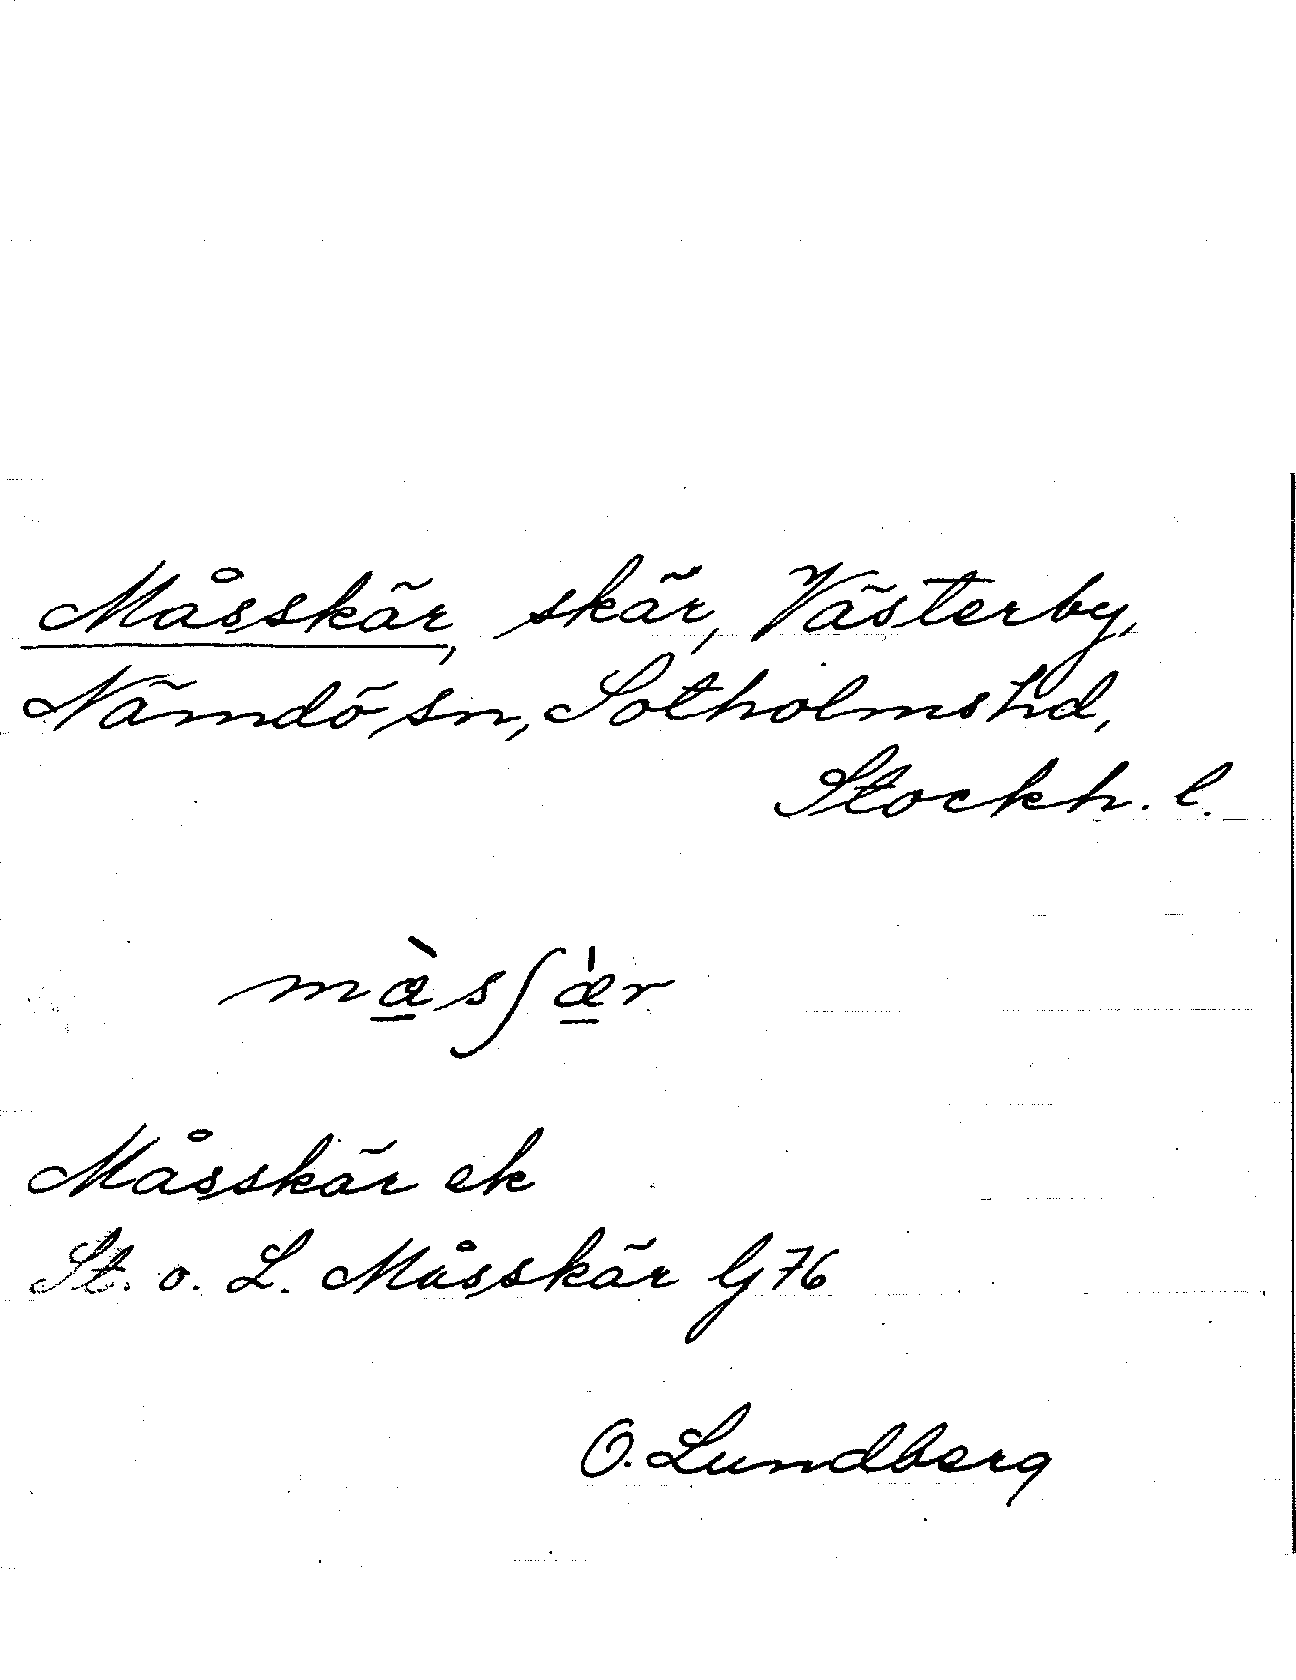 Måsskär, skär, Västerby,
Nämdö sn, Sotholms hd,
Stockh. l.
mæ̲̀sʃæ̲̍r
Måsskär ek
St. o. L. Måsskär lj 76
O. Lundberg